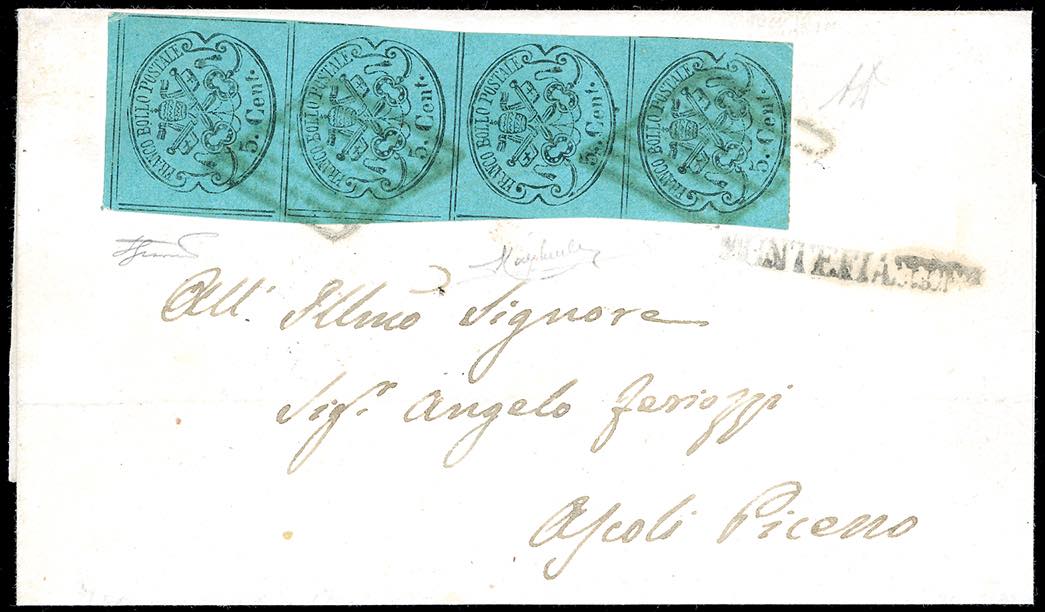 FRANCO BOLLO POSTALE 5. Cent.
FRANCO BOLLO POSTALE 5. Cent.
FRANCO BOLLO POSTALE 5. Cent.
FRANCO BOLLO POSTALE 5. Cent.
All.' Illmõ Signore
Sigr. Angelo
Ascoli Piceno